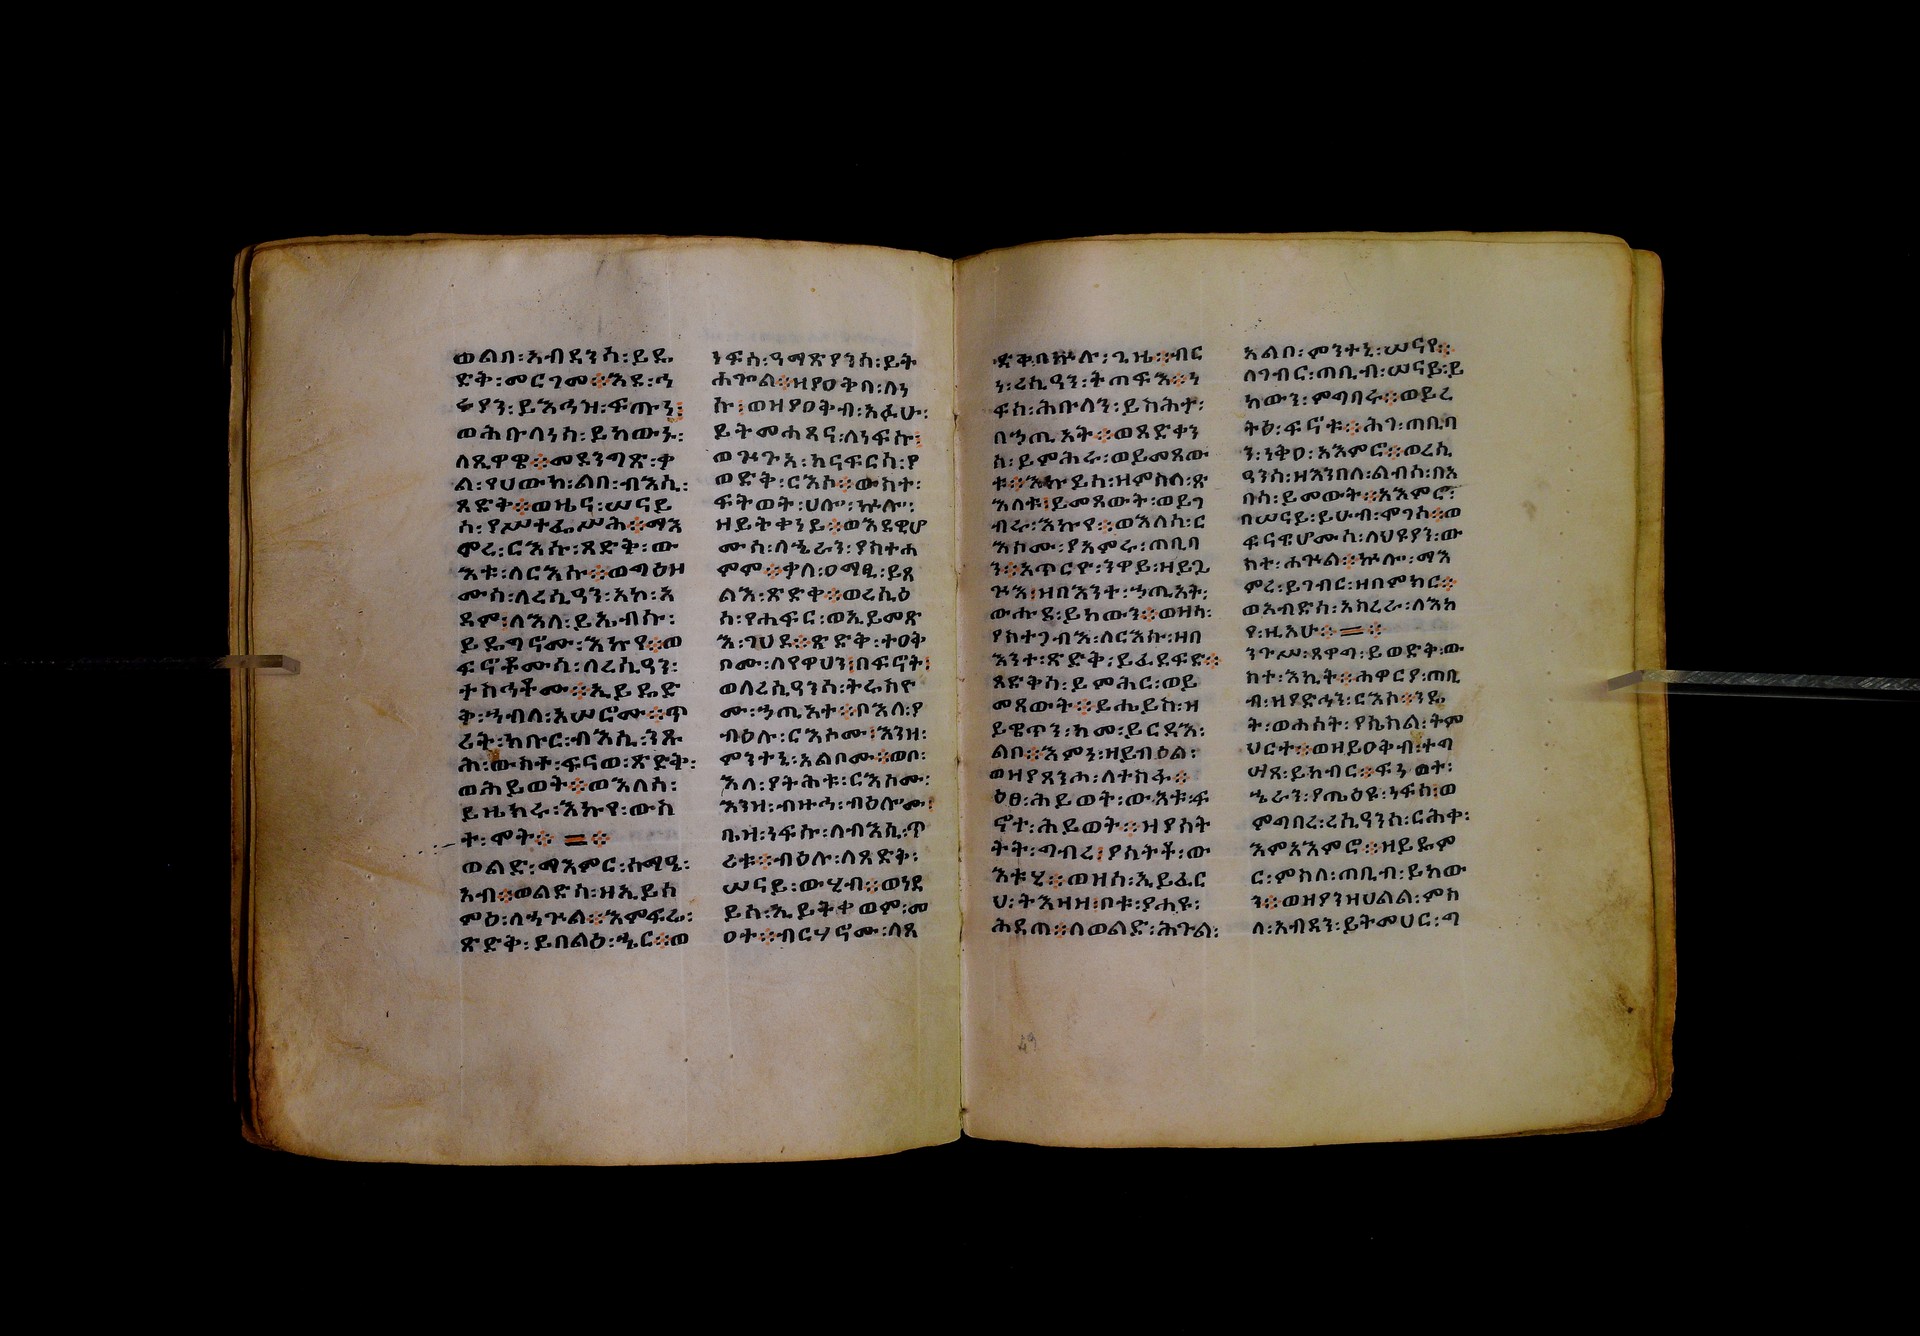 ወልበ፡አብደንስ፡ይዴ
ድቅ፡መርገመ፨እደ፡ኀ
ሩያን፡ይእኅዝ፡ፍጡን፤
ወሕቡላነስ፡ይከውኑ፡
ለጺዋዌ፨መደንግጽ፡ቃ
ል፡የሀውከ፡ልበ፡ብእሲ፡
ጻድቅ፨ወዜና፡ሠናይ
ስ፡ያሥተፌሥሕ፨ማእ
ምረ፡ርእሱ፡ጻድቅ፡ው
እቱ፡ለርእሱ፨ወግዕዘ
ሙስ፡ለረሲዓን፡አኮ፡አ
ዳም፤ለእለ፡ይኤብሱ፡
ይዴግኖሙ፡እኩየ፨ወ
ፍኖቶሙስ፡ለረሲዓን፡
ተስኅቶሙ፨ኢይዴድ
ቅ፡ኀብለ፡አሠሮሙ፨ጥ
ሪት፡ክቡር፡ብእሲ፡ንጹ
ሕ፡ውስተ፡ፍናወ፡ጽድቅ፡
ወሕይወት፨ወእለስ፡
ይዜከሩ፡እኩየ፡ውስ
ተ፡ሞት፨ = ፨
ወልድ፡ማእምር፡ሰማዒ፡
አብ፨ወልድስ፡ዘኢይሰ
ምዕ፡ለኃጕል፨እምፍሬ፡
ጽድቅ፡ይበልዕ፡ኄር፨ወ
ነፍሰ፡ዓማፅያንስ፡ይት
ሐጐል፨ዘያዐቅብ፡ለነ
ኩ፤ወዘያዐቅብ፡አፉሁ፡
ይትመሐጸና፡ለነፍሱ፤
ወጕጉአ፡ከናፍርስ፡የ
ወድቅ፡ርእሶ፨ውስተ፡
ፍትወት፡ሀሎ፡ኵሎ፡
ዘይትቀነይ፨ወእደዊሆ
ሙስ፡ለኄራን፡ያስተሐ
ምም፨ቃለ፡ዐማፂ፡ይጸ
ልእ፡ጽድቅ፨ወረሲዕ
ስ፡የሐፍር፡ወኢይመጽ
እ፡ገሀደ፨ጽድቅ፡ተዐቅ
ቦሙ፡ለየዋሀን፤በፍኖት፤
ወለረሲዓንስ፡ትሬስዮ
ሙ፡ኃጢአተ፨ቦእለ፡ያ
ብዕሉ፡ርእሶሙ፤እንዘ፡
ምንተኒ፡አልቦሙ፨ወቦ፡
እለ፡ያትሕቱ፡ርእሶሙ፡
እንዘ፡ብዙኅ፡ብዕሎሙ፤
ቤዛ፡ነፍሱ፡ለብእሲ፡ጥ
ሪቱ፨ብዕሉ፡ለጻድቅ፡
ሠናይ፡ውሂብ፨ወነዳ
ይስ፡ኢይትቀወም፡መ
ዐተ፨ብርሃኖሙ፡ለጻ
ድቃን፡በኵሉ፡ጊዜ፨ብር
ነ፡ረሲዓን፡ትጠፍእ፨ነ
ፍስ፡ሕቡለን፡ይስሕት፡
በኃጢአት፨ወጻድቃን
ስ፡ይምሕሩ፡ወይመጸው
ቱ፨እኩይስ፡ዘምስለ፡ጽ
እለቱ፤ይመጸውት፡ወይገ
ብሩ፡እኩየ፨ወእለስ፡ር
እሶሙ፡ያአምሩ፡ጠቢባ
ን፨አጥርዮ፡ንዋይ፡ዘይጔ
ጕእ፤ዘበእንተ፡ኃጢአት፡
ውሑደ፡ይከውን፨ወዘስ፡
ያስተጋብእ፡ለርእሱ፡ዘበ
እንተ፡ጽድቅ፡ይፈደፍድ፨
ጻድቅስ፡ይምሕር፡ወይ
መጸውት፨ይሔይስ፡ዘ
ይዌጥን፡ከመ፡ይርዳእ፡
ልቦ፨እምነ፡ዘይብዕል፡
ወዘያጸንሖ፡ለተስፋ፨
ዕፀ፡ሕይወት፡ውእቱ፡ፍ
ኖተ፡ሕይወት፨ዘያስት
ትት፡ግብረ፤ያስትቶ፡ው
እቱሂ፨ወዘስ፡ኢይፈር
ህ፡ትእዛዘ፤ቦቱ፡ያሐዩ፡
ሕይወ፨ለወልድ፡ሕጉል፡
አልቦ፡ምንተኒ፡ሠናየ፨
ለገብር፡ጠቢብ፡ሠናይ፡ይ
ከውን፡ምግባሩ፨ወይረ
ትዕ፡ፍኖቱ፨ሕገ፡ጠቢባ
ን፡ነቅዐ፡አእምሮ፨ወረሲ
ዓንስ፡ዘእንበለ፡ልብስ፡በአ
በሳ፡ይመውት፨አእምሮ፡
በሠናይ፡ይሁብ፡ሞገሰ፨ወ
ፍናዊሆሙስ፡ለህየየን፡ው
ስተ፡ሐጕል፨ኵሉ፡ማእ
ምረ፡ይገብር፡ዘበምክር፨
ወአብድስ፡አክረራ፡ለእከ
የ፡ዚአሁ፨ = ፨
ንጉሥ፡ጸዋግ፡ይወድቅ፡ው
ስተ፡እኪት፨ሐዋርያ፡ጠቢ
ብ፡ዘያድኅን፡ርእሶ፨ንዴ
ት፡ወሐሰት፡የኬክል፡ትም
ህርተ፨ወዘይዐቅብ፡ተግ
ሣጸ፡ይከብር፨ፍትወት፡
ኄራን፡ያጤዕዩ፡ነፍሰ፤ወ
ምግባረ፡ረሲዓንስ፡ርሕቀ፡
እምአእምሮ፨ዘይዴም
ር፡ምስለ፡ጠቢብ፡ይከው
ን፨ወዘያንዛህልል፡ምስ
ለ፡አብዳን፡ይትመሀር፡ግ
49